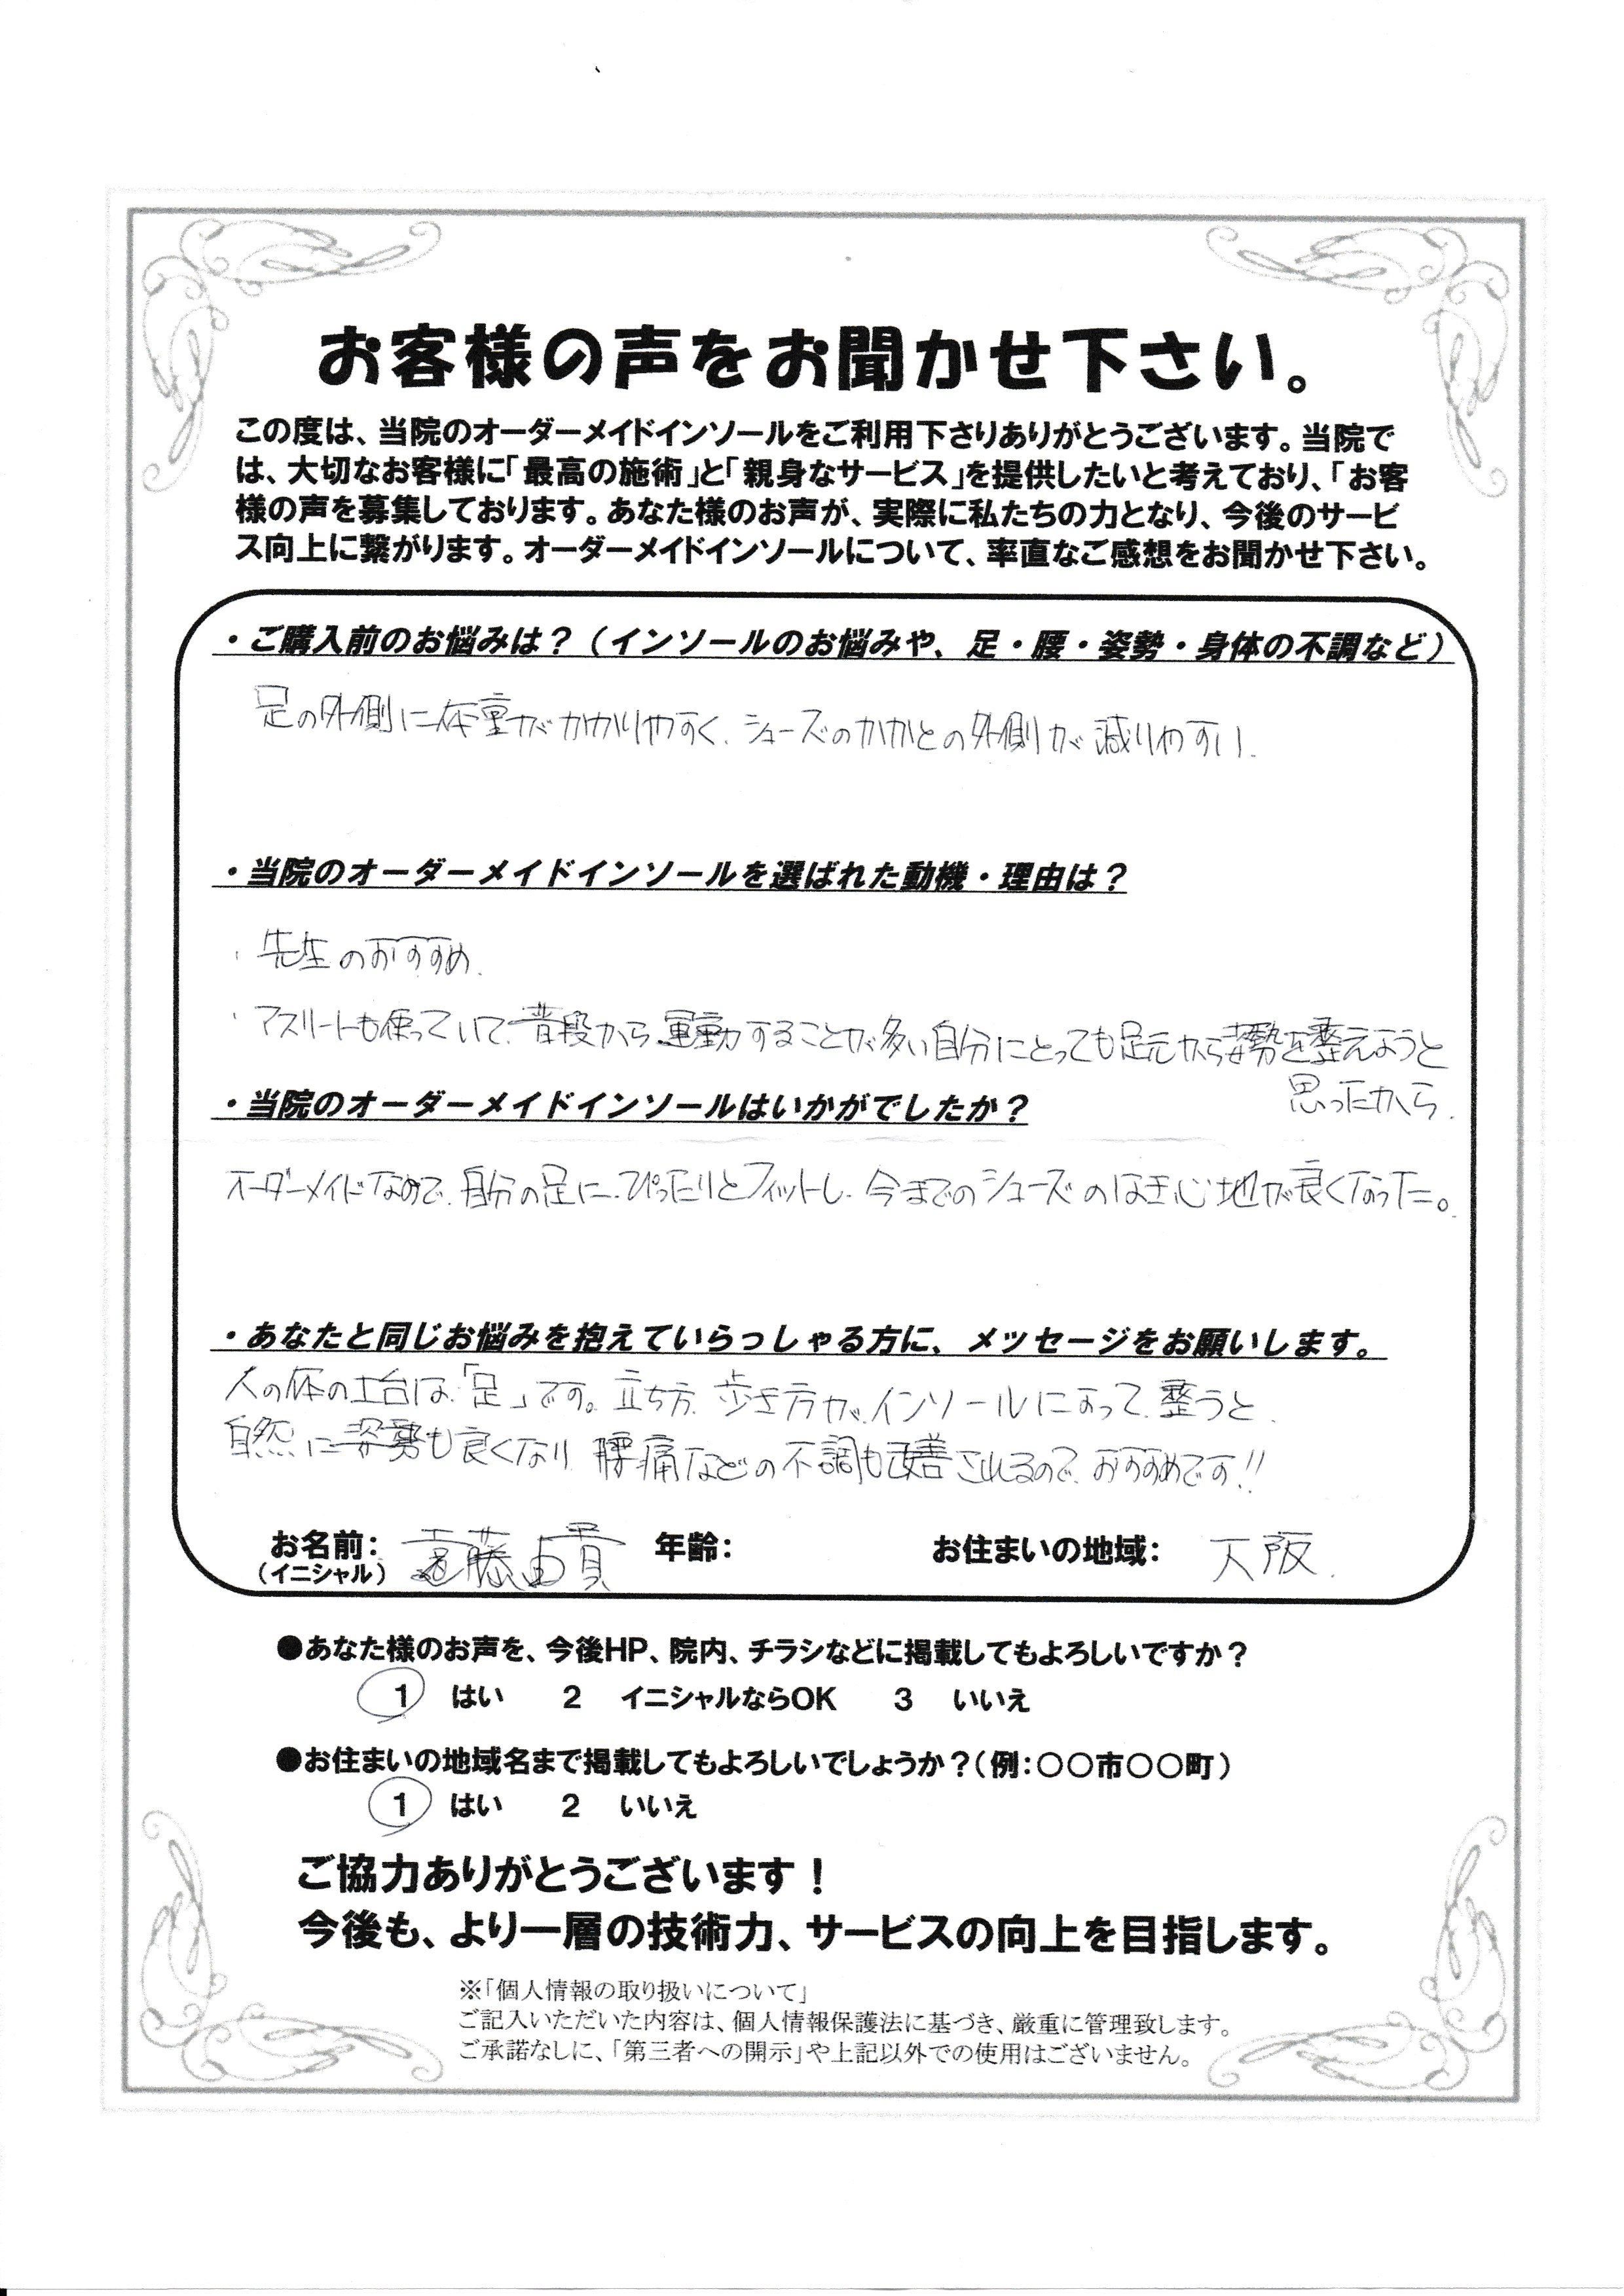 お客様の声をお聞かせ下さい。
この度は、当院のオーダーメイドインソールをご利用下さりありがとうございます。当院で
は、大切なお客様に「最高の施術」と「親身なサービス」を提供したいと考えており、「お客
様の声を募集しております。あなた様のお声が、実際に私たちの力となり、今後のサービ
ス向上に繋がります。オーダーメイドインソールについて、率直なご感想をお聞かせ下さい。
・ご購入前のお悩みは?(インソールのお悩みや、足・腰・姿勢・身体の不調など)
足の外側に体重がかかりやすく、シューズのかかとの外側が減りやすい.
・当院のオーダーメイドインソールを選ばれた動機・理由は?
・先生のおすすめ.
・アスリートも使っていて、普段から運動することが多い自分にとっても足元から姿勢を整えようと
思ったから.
・当院のオーダーメイドインソールはいかがでしたか?
オーダーメイドなので、自分の足に、ぴったりとフィットし、今までのシューズのはき心地が良くなった。
・あなたと同じお悩みを抱えていらっしゃる方に、メッセージをお願いします。
人の体の土台は、「足」です。立ち方、歩き方が、インソールによって、整うと、
自然に姿勢も良くなり、腰痛などの不調も改善されるので、おすすめです!!
お名前: 遠藤由貴 年齢: お住まいの地域: 大阪.
(イニシャル)
●あなた様のお声を、今後HP、院内、チラシなどに掲載してもよろしいですか?
1 はい 2 イニシャルならOK 3 いいえ
●お住まいの地域名まで掲載してもよろしいでしょうか?(例:〇〇市〇〇町)
1 はい 2 いいえ
ご協力ありがとうございます!
今後も、より一層の技術力、サービスの向上を目指します。
※「個人情報の取り扱いについて」
ご記入いただいた内容は、個人情報保護法に基づき、厳重に管理致します。
ご承諾なしに、「第三者への開示」や上記以外での使用はございません。